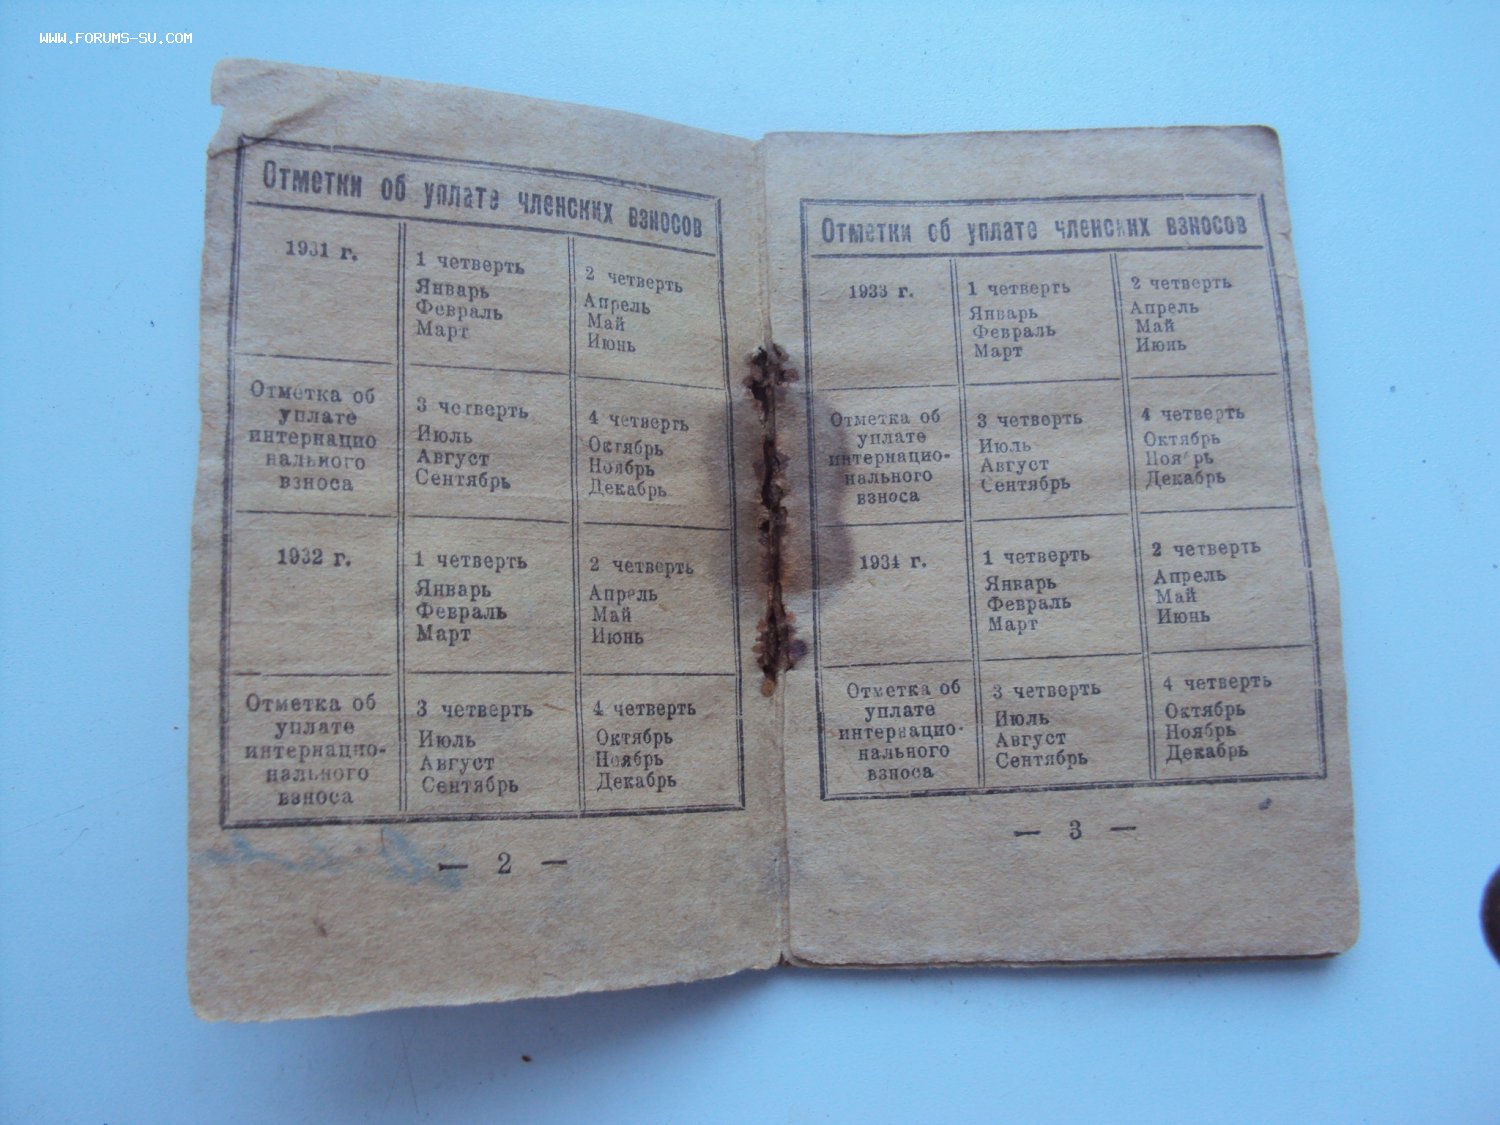 WWW.FORUMS-SU.COM
Отметки об уплате членских взносов
1931 г.
1 четверть
Январь
Февраль
Март
2 четверть
Апрель
Май
Июнь
Отметка об
уплате
интернацио
нального
взноса
3 четверть
Июль
Август
Сентябрь
4 четверть
Октябрь
Ноябрь
Декабрь
1932 г.
1 четверть
Январь
Февраль
Март
2 четверть
Апрель
Май
Июнь
Отметка об
уплате
интернацио-
нального
взноса
3 четверть
Июль
Август
Сентябрь
4 четверть
Октябрь
Ноябрь
Декабрь
— 2 —
Отметки об уплате членских взносов
1933 г.
1 четверть
Январь
Февраль
Март
2 четверть
Апрель
Май
Июнь
Отметка об
уплате
интернацио-
нального
взноса
3 четверть
Июль
Август
Сентябрь
4 четверть
Октябрь
Ноябрь
Декабрь
1934 г.
1 четверть
Январь
Февраль
Март
2 четверть
Апрель
Май
Июнь
Отметка об
уплате
интернацио-
нального
взноса
3 четверть
Июль
Август
Сентябрь
4 четверть
Октябрь
Ноябрь
Декабрь
— 3 —